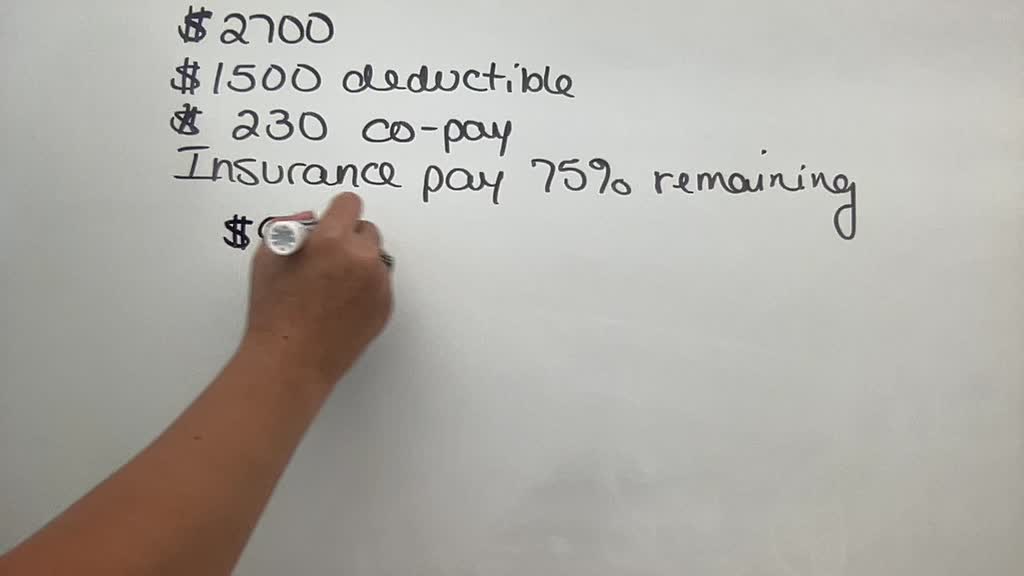 $2700
$1500 deductible
$ 230 co-pay
Insurance pay 75% remaining
$